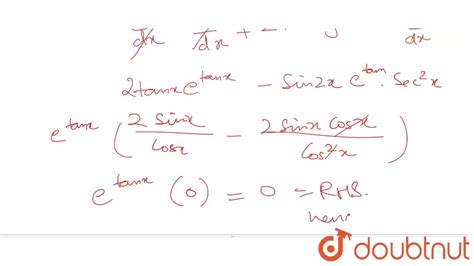 dx dx + - . dx
2tanx e^tanx - Sin2x e^tan . Sec²x
e^tanx ( 2 sinx / Cosx - 2 sinx cosx / Cos²x )
e^tanx (0) = 0 = RHS.
doubtnut